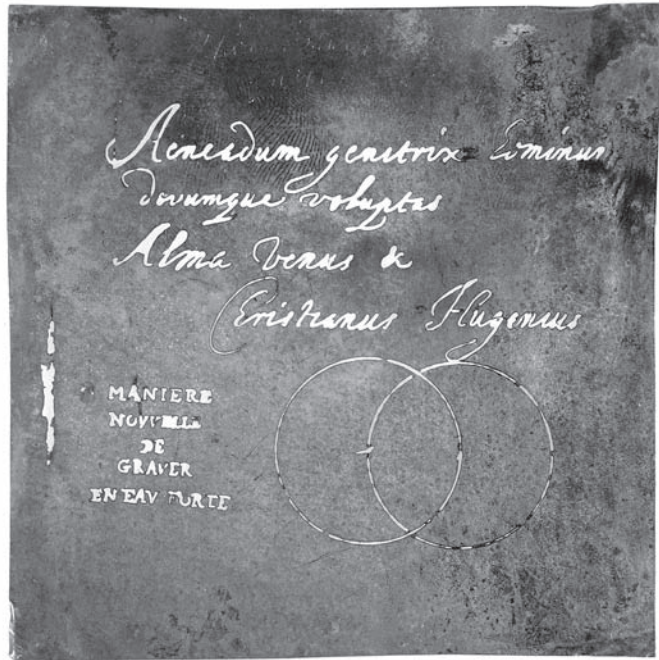 Aeneadum genitrix hominus
divumque voluptas
Alma Venus &
Cristianus Hugenius
MANIERE
NOVVELLE
DE
GRAVER
EN EAV FORTE